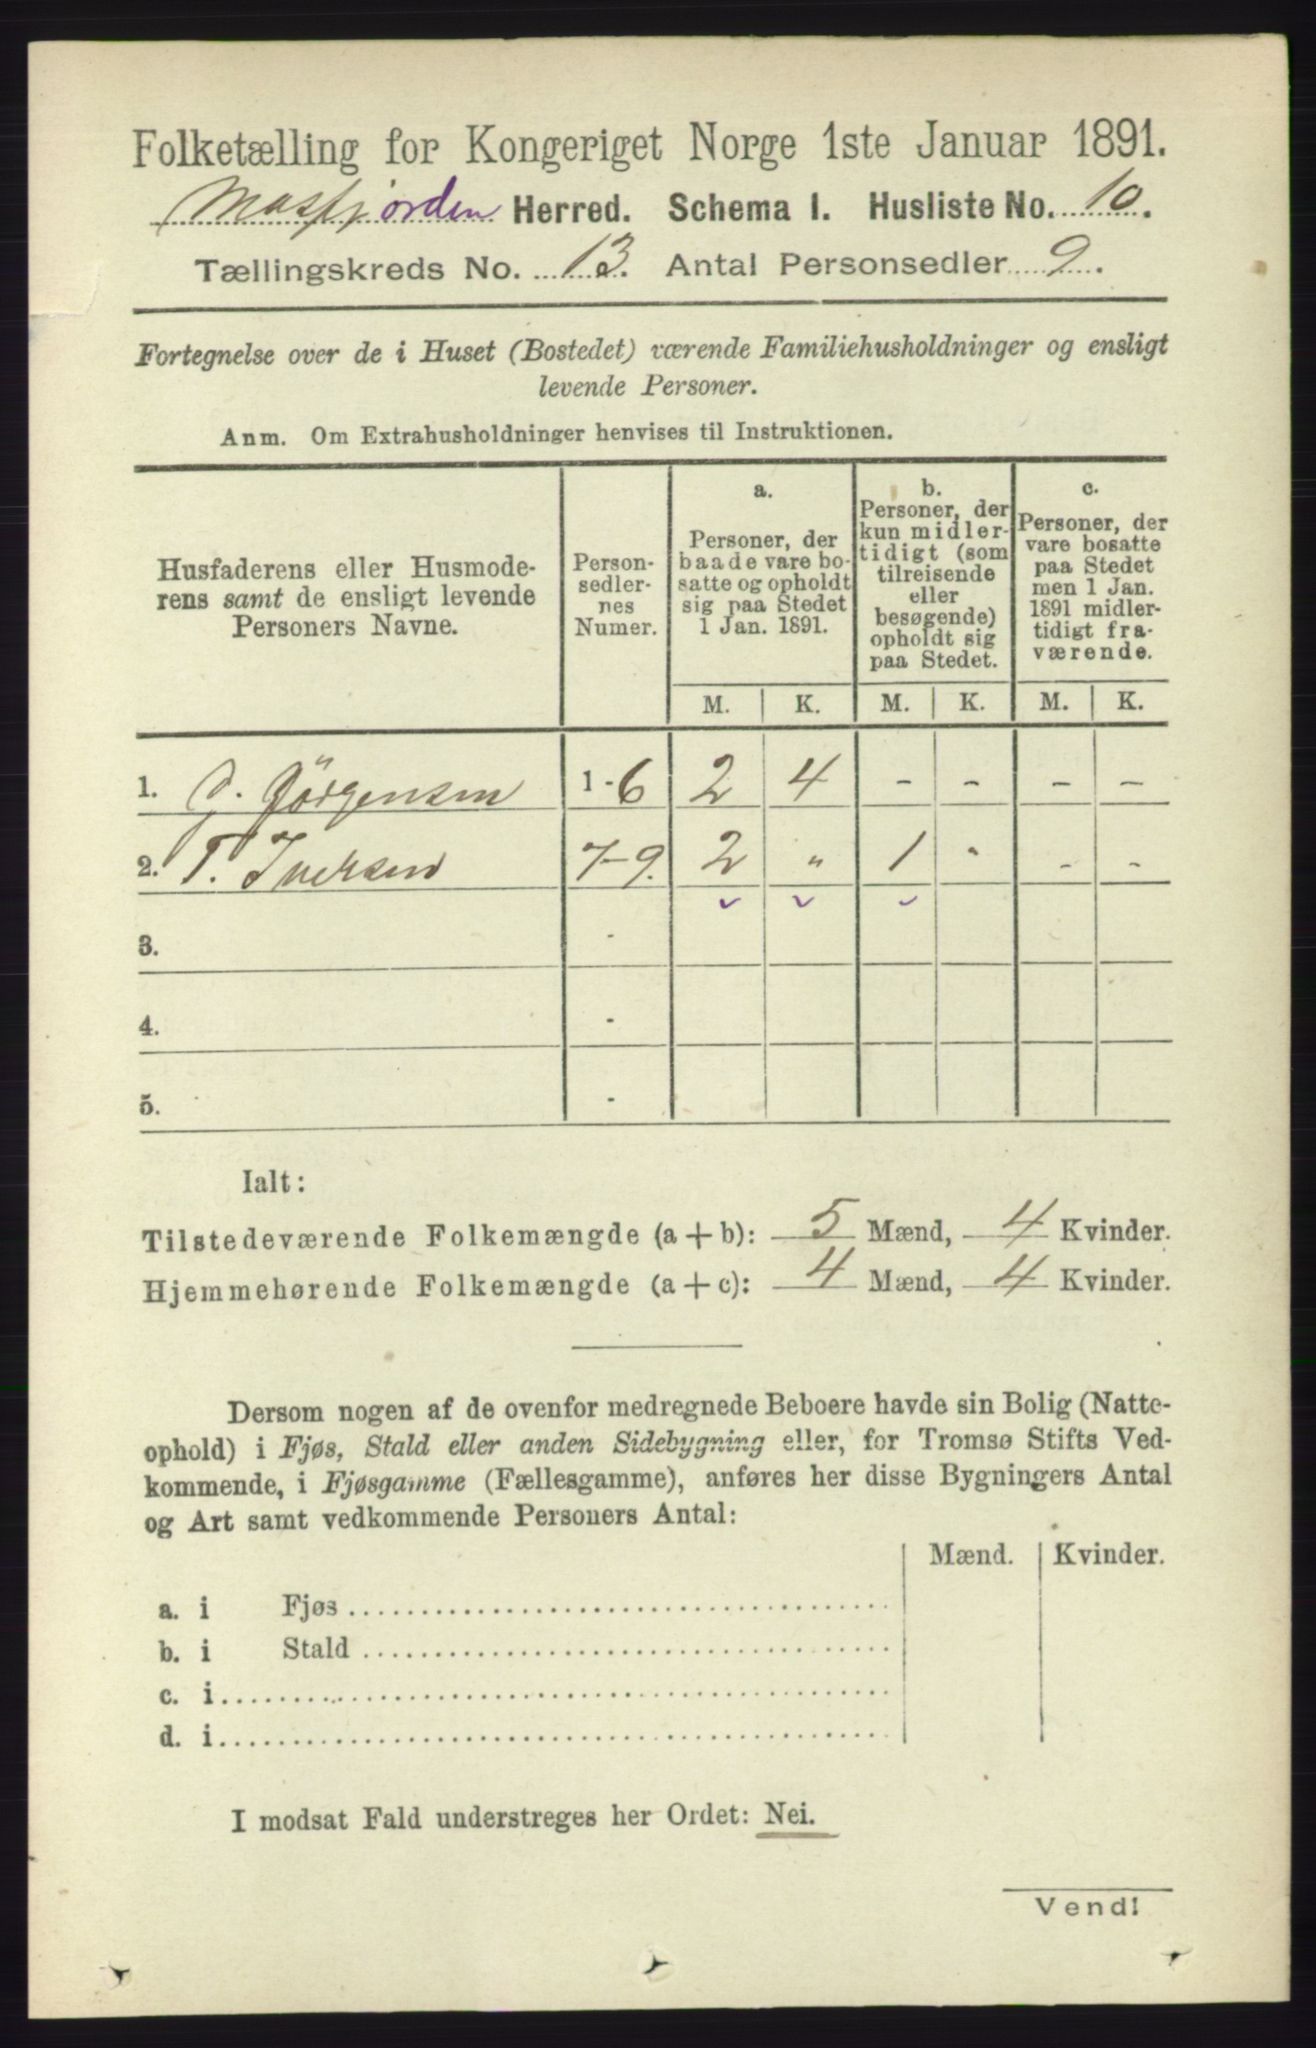 Folketælling for Kongeriget Norge 1ste Januar 1891.
Masfjorden Herred. Schema I. Husliste No. 10.
Tællingskreds No. 13. Antal Personsedler 9.
Fortegnelse over de i Huset (Bostedet) værende Familiehusholdninger og ensligt
levende Personer.
Anm. Om Extrahusholdninger henvises til Instruktionen.
Husfaderens eller Husmode-
rens samt de ensligt levende
Personers Navne.
Person-
sedler-
nes
Numer.
a.
Personer, der
baade vare bo-
satte og opholdt
sig paa Stedet
1 Jan. 1891.
b.
Personer, der
kun midler-
tidigt (som
tilreisende
eller
besøgende)
opholdt sig
paa Stedet.
c.
Personer, der
vare bosatte
paa Stedet
men 1 Jan.
1891 midler-
tidigt fra-
værende.
M. K. M. K. M. K.
1. J. Jörgensen 1-6 2 4 - - - -
2. T. Iversen 7-9. 2 " 1 " - -
3. -
4. -
5. -
Ialt:
Tilstedeværende Folkemængde (a+b): 5 Mænd, 4 Kvinder.
Hjemmehørende Folkemængde (a+c): 4 Mænd, 4 Kvinder.
Dersom nogen af de ovenfor medregnede Beboere havde sin Bolig (Natte-
ophold) i Fjøs, Stald eller anden Sidebygning eller, for Tromsø Stifts Ved-
kommende, i Fjøsgamme (Fællesgamme), anføres her disse Bygningers Antal
og Art samt vedkommende Personers Antal:
Mænd. Kvinder.
a. i Fjøs
b. i Stald
c. i
d. i
I modsat Fald understreges her Ordet: Nei.
Vend!